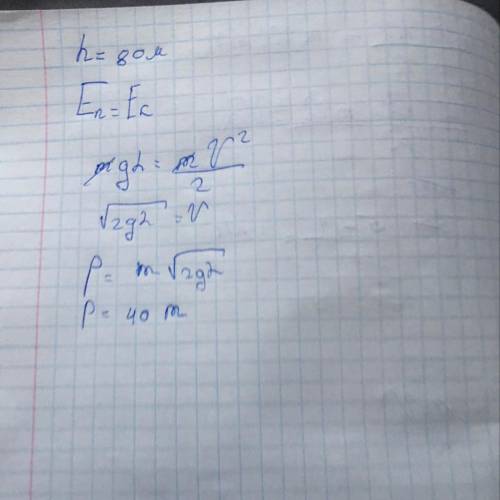 h = 80м
Eп = Eк
mgh = mV²/2
√2gh = V
p = m√2gh
p = 40 m